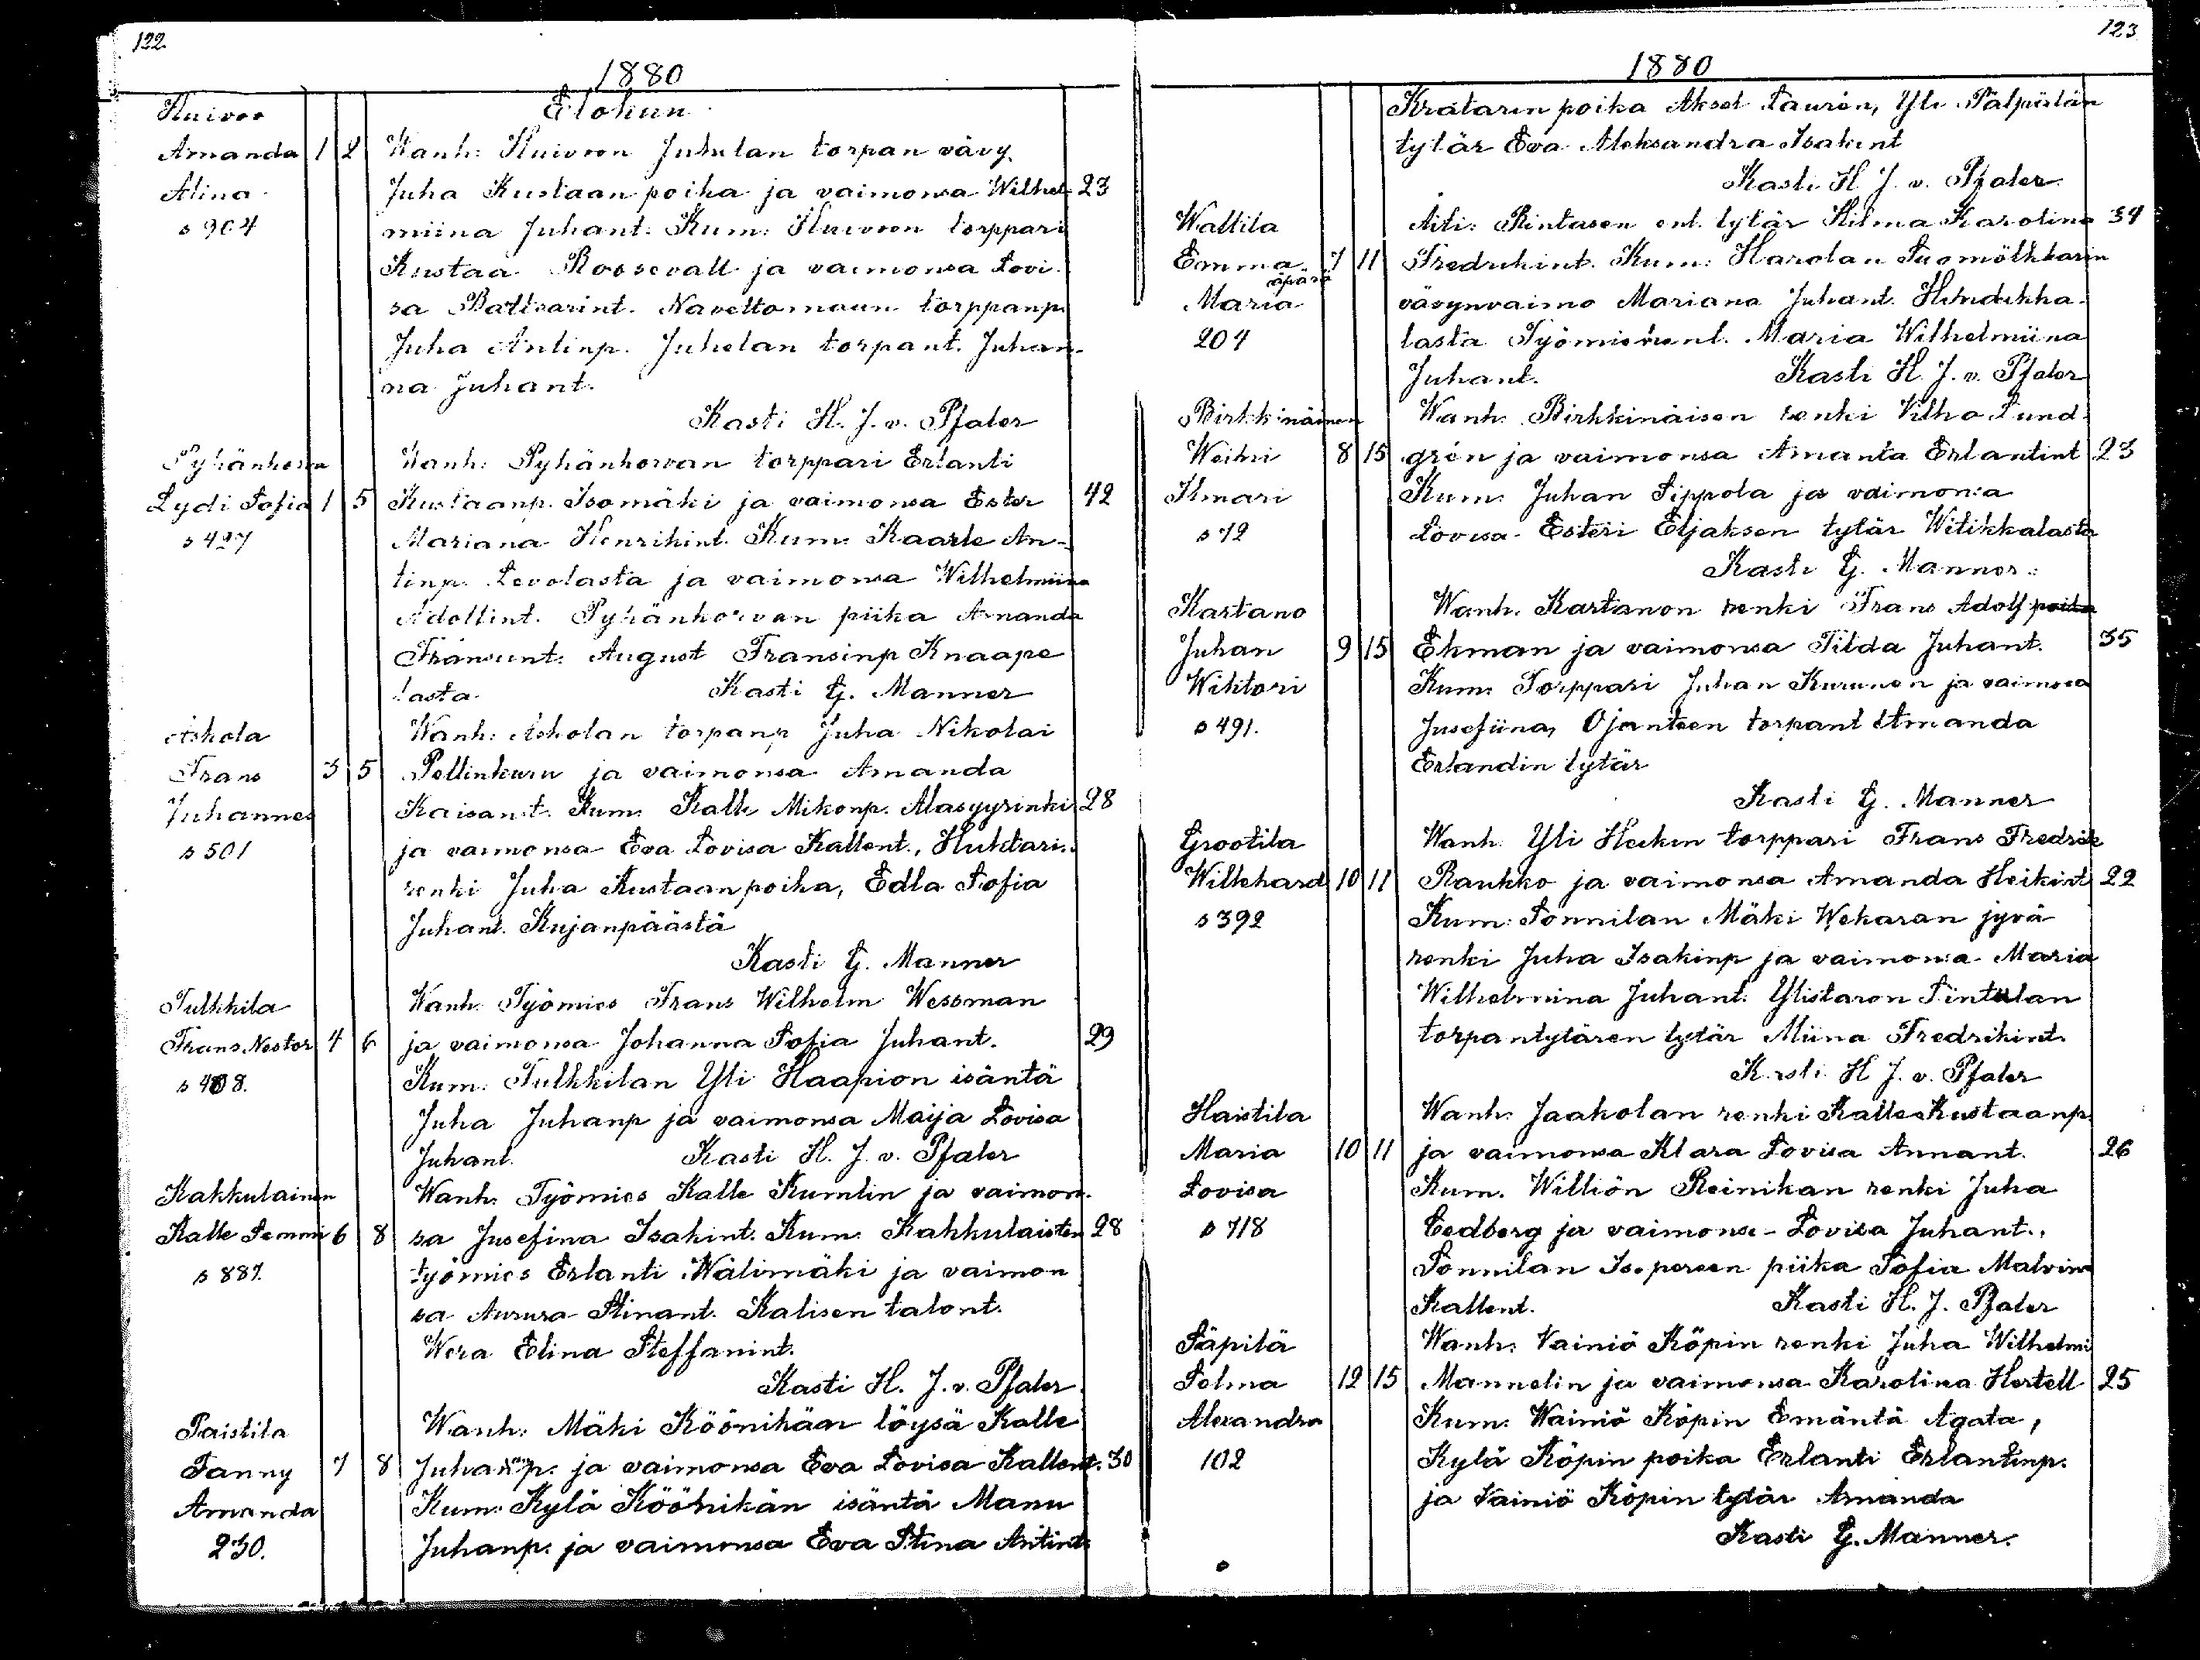 122
1880
Elokun
Huivoo
Amanda 1 2 Wanh: Huivoon Juhulan torpan vävy
Alina Juha Kustaan poika ja vaimonsa Wilhel- 23
s 904 miina Juhant: Kum: Huivoon torppari
Kustaa Roosevall ja vaimonsa Lovi-
sa Baltsarint. torppanp.
Juha Antinp. Juhelan torpant. Juhan-
na Juhant.
Kasti H. J. v. Pfaler
Pyhänkorva Wanh: Pyhänkorvan torppari Erlanti
Lydi Sofia 1 5 Kustaanp. Isomäki ja vaimonsa Ester 42
s 427 Mariana Henrikint. Kum: Kaarle An-
tinp. Levolasta ja vaimonsa Wilhelmiina
Adollint. Pyhänkorvan piika Amanda
Fransunt: August Fransinp Knaape
lasta. Kasti G. Manner
Askola Wanh: Askolan torpanp Juha Nikolai
Frans 3 5 Pellinkuru ja vaimonsa Amanda
Juhannes Kaisant. Kum: Kalle Mikonp. Alasyyrinki 28
s 501 ja vaimonsa Eva Lovisa Kallent., Huhtarin
renki Juha Kustaanpoika, Edla Sofia
Juhant. Kujanpäästä
Kasti G. Manner
Tulkkila Wanh: Työmies Frans Wilhelm Wessman
Frans Nestor 4 6 ja vaimonsa Johanna Sofia Juhant. 29
s 408. Kum: Tulkkilan Yli Haapion isäntä
Juha Juhanp ja vaimonsa Maija Lovisa
Juhant. Kasti H. J. v. Pfaler
Kakkulainen Wanh: Työmies Kalle Kumlin ja vaimon-
Kalle Semmi 6 8 sa Josefina Isakint. Kum: Kakkulaisten 28
s 887. työmies Erlanti Wälimäki ja vaimon
sa Aurura Stinant. Kalisen talont.
Wera Elina Steffanint.
Kasti H. J. v. Pfaler
Paistila Wanh: Mäki Köönikään löysä Kalle
Fanny 7 8 Juhanp. ja vaimonsa Eva Lovisa Kallent. 30
Amanda Kum: Kylä Köönikän isäntä Manu
230. Juhanp. ja vaimonsa Eva Stina Antint.
123
1880
Kratarin poika Aksel Lauren, Yli
tytär Eva Aleksandra Isakint
Kasti H J. v. Pfaler
Wallila Äiti: Rintasen ent. tytär Hilma Karolina 34
Emma 7 11 Fredrikint. Kum: Harolan
äpärä
Maria vävynvaimo Mariana Juhant.
204 lasta Maria Wilhelmiina
Juhant. Kasti H. J. v. Pfaler
Birkkinäinen Wanh: Birkkinäisen renki Vilho Lund-
Weikri 8 15 gren ja vaimonsa Amanta Erlantint 23
Ilmari Kum: Juhan Sippola ja vaimonsa
s 72 Lovisa. Esteri Eljaksen tytär Witikkalasta
Kasti G. Manner
Kartano Wanh. Kartanon renki Frans Adolf poika
Juhan 9 15 Ekman ja vaimonsa Tilda Juhant. 35
Wiktori Kum: Torppari Juhan Kurunen ja vaimonsa
s 491. Josefiina, Ojanteen torpant Amanda
Erlandin tytär
Kasti G. Manner
Grootila Wanh: Yli Heikin torppari Frans Fredrik
Wilkhard 10 11 Raukko ja vaimonsa Amanda Heikint 22
s 392 Kum: Sonnilan Mäki Wekaran jyvä
renki Juha Isakinp ja vaimonsa Maria
Wilhelmina Juhant. Ylistaron Sintulan
torpantytären tytär Miina Fredrikint.
Kasti H J. v. Pfaler
Haistila Wanh: Jaakolan renki Kalle Kustaanp
Maria 10 11 ja vaimonsa Klara Lovisa Annant. 26
Lovisa Kum. Williön Reinikan renki Juha
s 718 Cedberg ja vaimonsa Lovisa Juhant.,
Sonnilan Isopereen piika Sofia Malvina
Kallent. Kasti H. J. Pfaler
Säpilä Wanh: Vainiö Köpin renki Juha Wilhelmi
Selma 12 15 Mannelin ja vaimonsa Karolina Hertell 25
Alexandra Kum: Wainiö Köpin Emäntä Agata,
102 Kylä Köpin poika Erlanti Erlantinp.
ja Vainiö Köpin tytär Amanda
Kasti G. Manner.